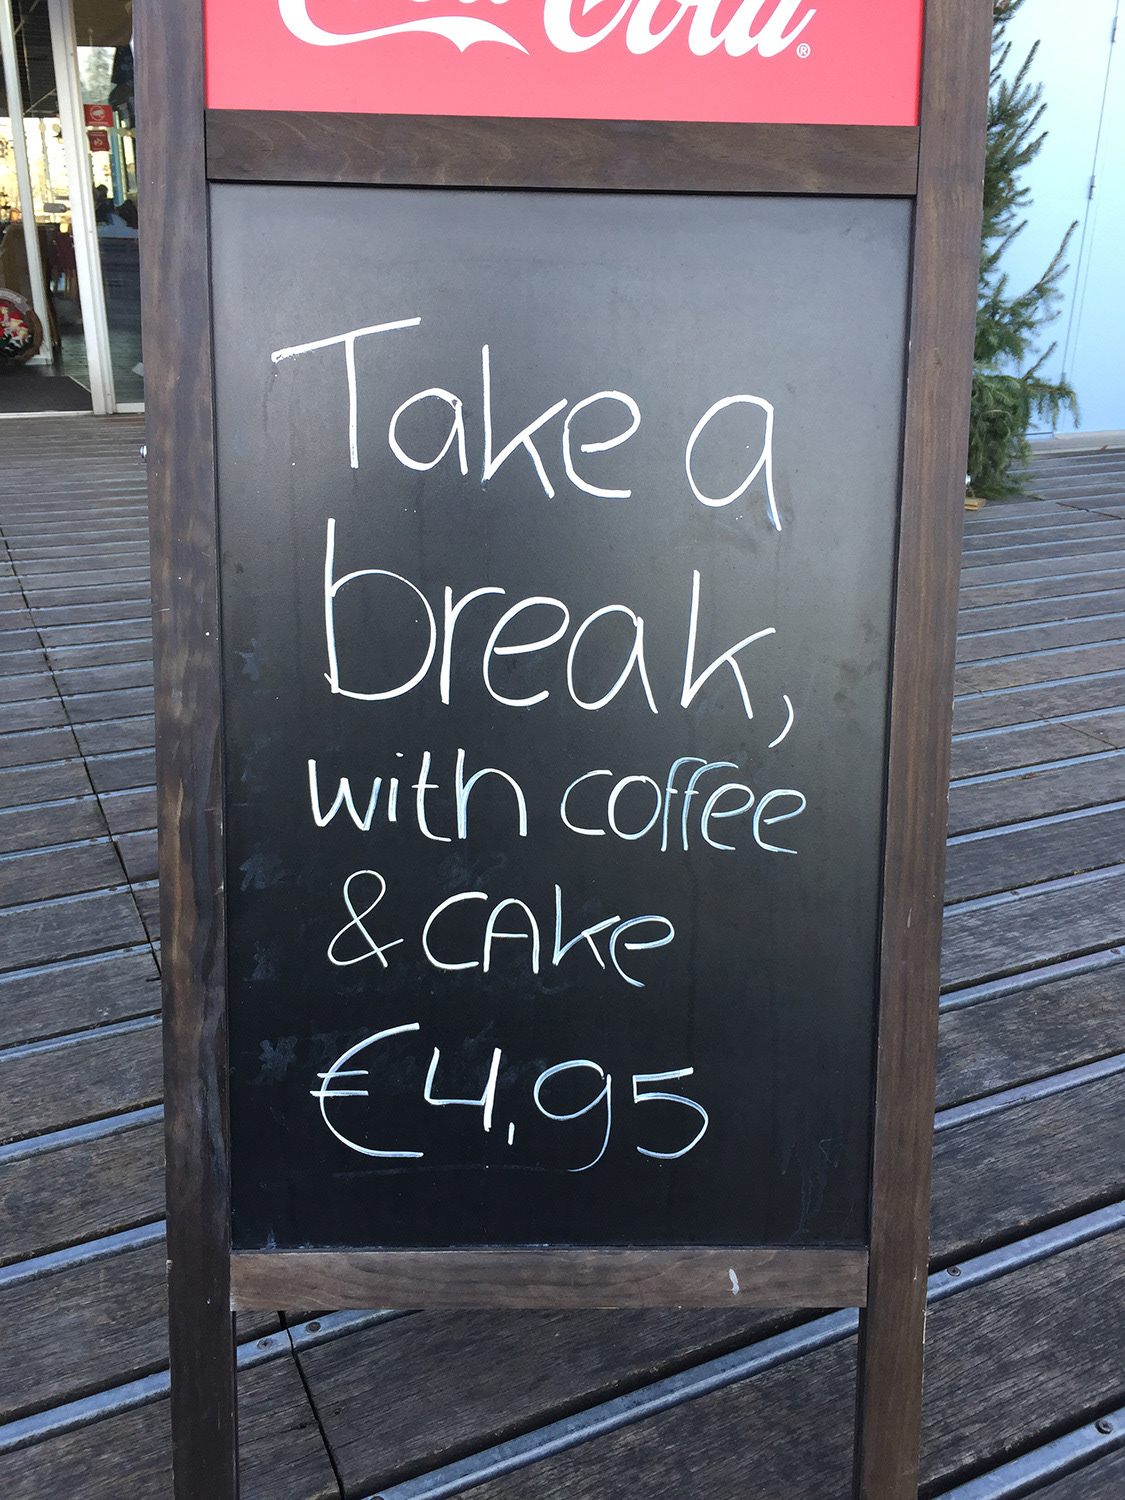 Cola®
Take a
break,
with coffee
& CAke
€4,95